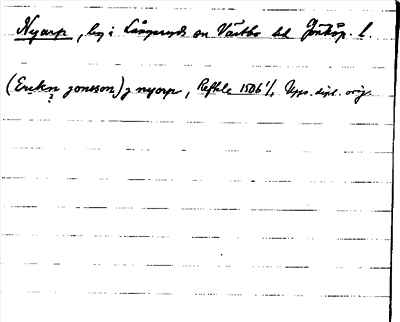 Nyarp, by i Långaryds sn Västbo hd Jönköp. l.
(Erikn jonsson) j nyarp, Reftele 1506 1/1 Upps. dipl. orig.
?